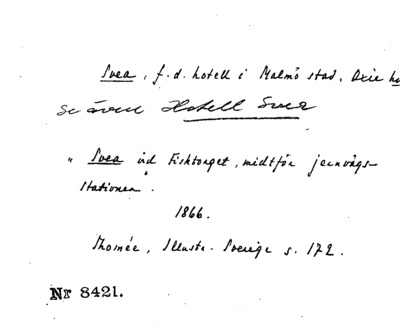 Svea, f.d. hotell i Malmö stad, Oxie h
se även Hotell Svea
" Svea vid Fisktorget, midtför jernvägs-
stationen.
1866.
Thomée, Illustr. Sverige s. 172.
Nr 8421.